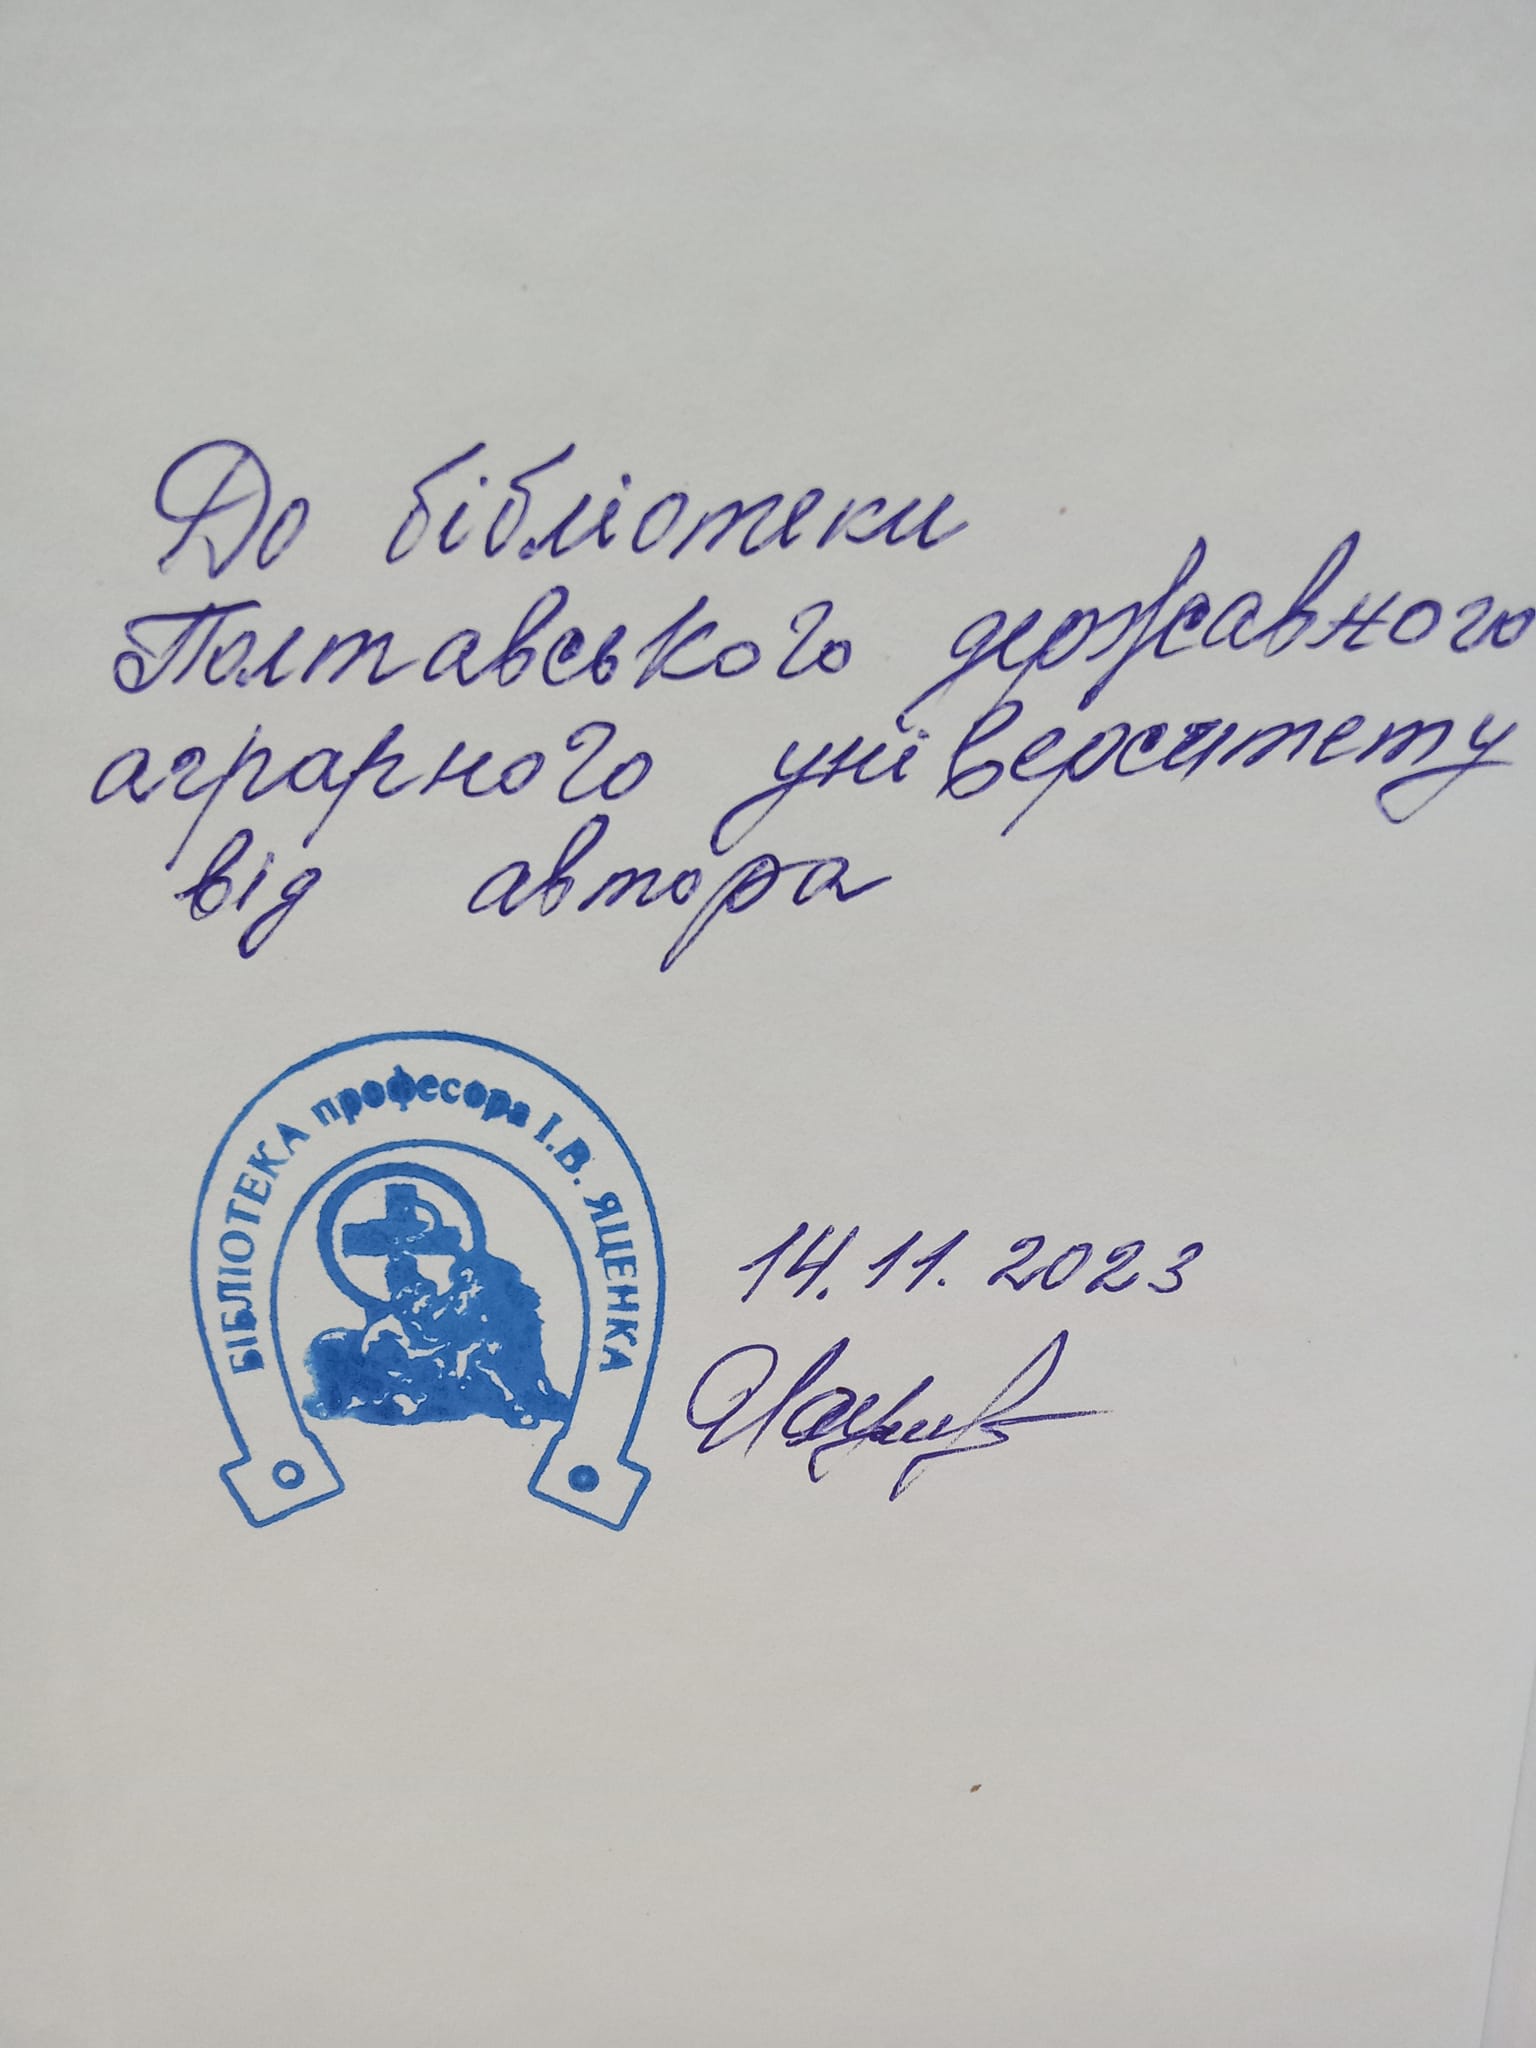 До бібліотеки
Полтавського державного
аграрного університету
від автора
БІБЛІОТЕКА професора І.В. ЯЦЕНКА
14.11.2023